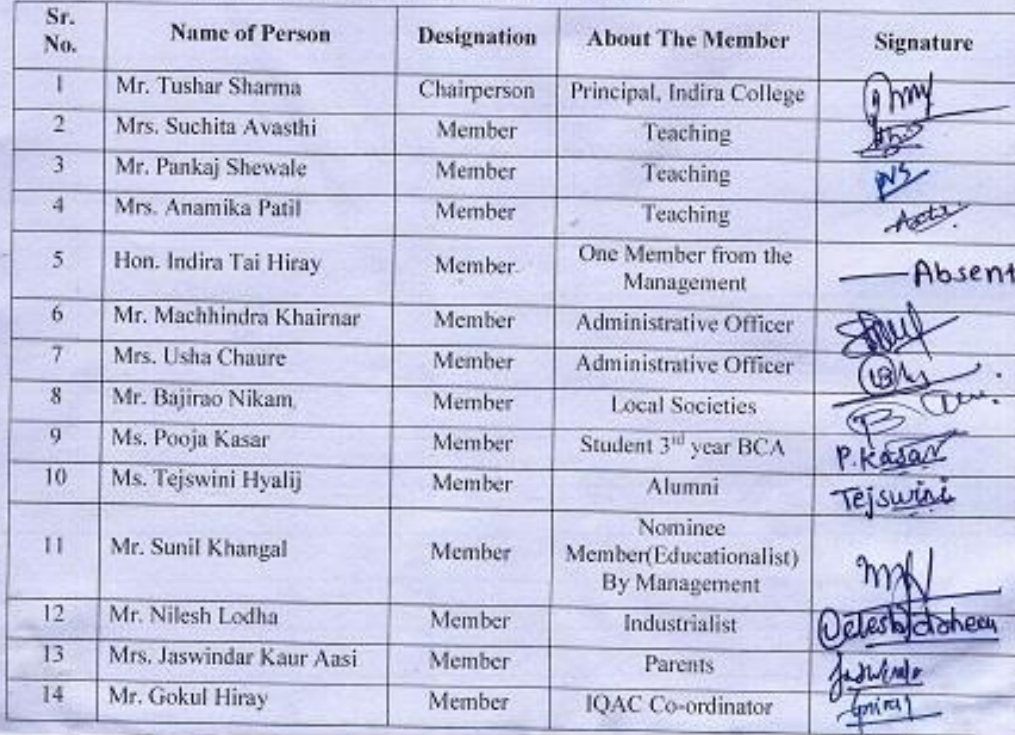 Sr. No. Name of Person Designation About The Member Signature
1 Mr. Tushar Sharma Chairperson Principal, Indira College
2 Mrs. Suchita Avasthi Member Teaching
3 Mr. Pankaj Shewale Member Teaching
4 Mrs. Anamika Patil Member Teaching
5 Hon. Indira Tai Hiray Member One Member from the Management Absent
6 Mr. Machhindra Khairnar Member Administrative Officer
7 Mrs. Usha Chaure Member Administrative Officer
8 Mr. Bajirao Nikam Member Local Societies
9 Ms. Pooja Kasar Member Student 3rd year BCA P.Kasar
10 Ms. Tejswini Hyalij Member Alumni Tejswini
11 Mr. Sunil Khangal Member Nominee Member(Educationalist) By Management
12 Mr. Nilesh Lodha Member Industrialist
13 Mrs. Jaswindar Kaur Aasi Member Parents
14 Mr. Gokul Hiray Member IQAC Co-ordinator